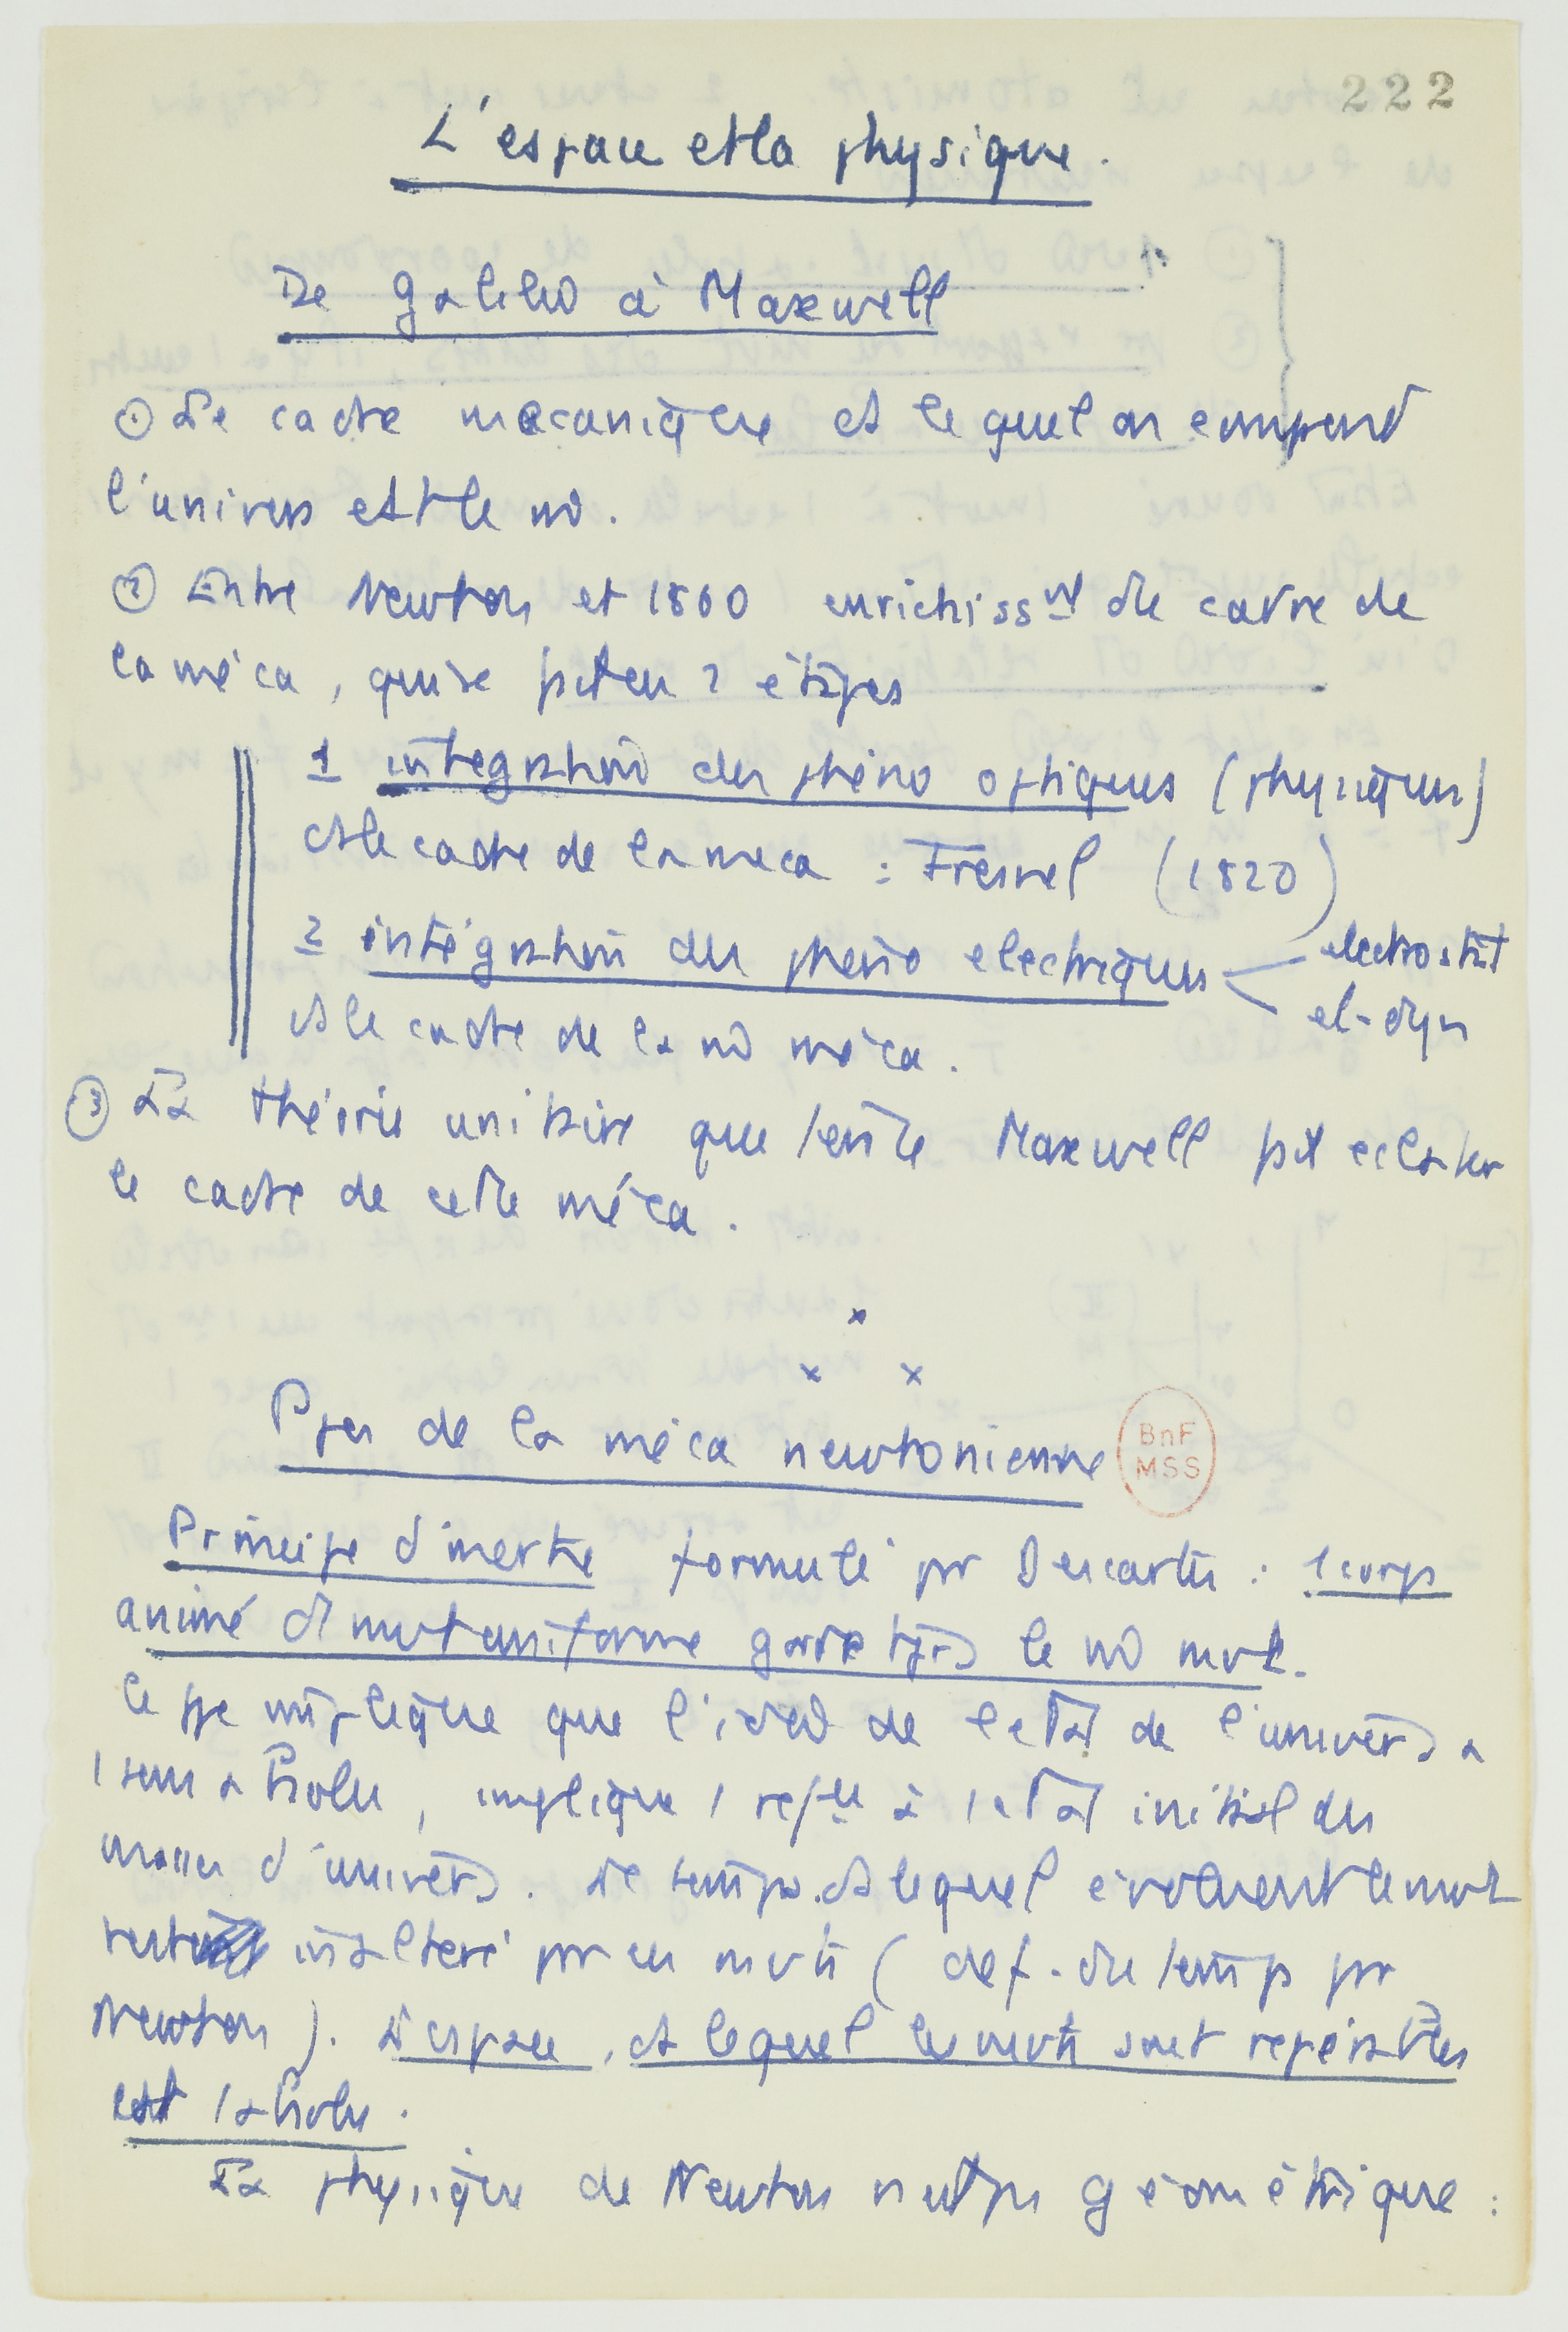 222
L'espace et la physique.
De Galileo à Maxwell
① Le cadre mecanique ds lequel on comprend
l'univers est le m̂.
② Entre Newton et 1800 enrichissnt du cadre de
la méca, qui se fait en 2 étapes
1 intégration des phéno optiques (physiques)
ds le cadre de la meca : Fresnel (1820)
2 intégration des phéno electriques
electrostat
el-dyn
ds le cadre de la m̂ méca.
③ La théorie unitaire que tente Maxwell fait eclater
le cadre de cette méca.
x
x x
Ppes de la méca newtonienne
BnF
MSS
Principe d'inertie formulé pr Descartes : 1 corps
animé d'1 mvt uniforme garde tjrs le m̂ mvt.
le ppe implique que l'idée de l'état de l'univers a
1 sens absolu, implique 1 refce à 1 état initial des
masses d'univers. Le temps ds lequel évoluent le mvt
inaltéré pr ces mvts (def. du temps pr
Newton). L'espace, ds lequel les mvts sont repérables
est 1 absolu.
La physique de Newton n'est pas géométrique :